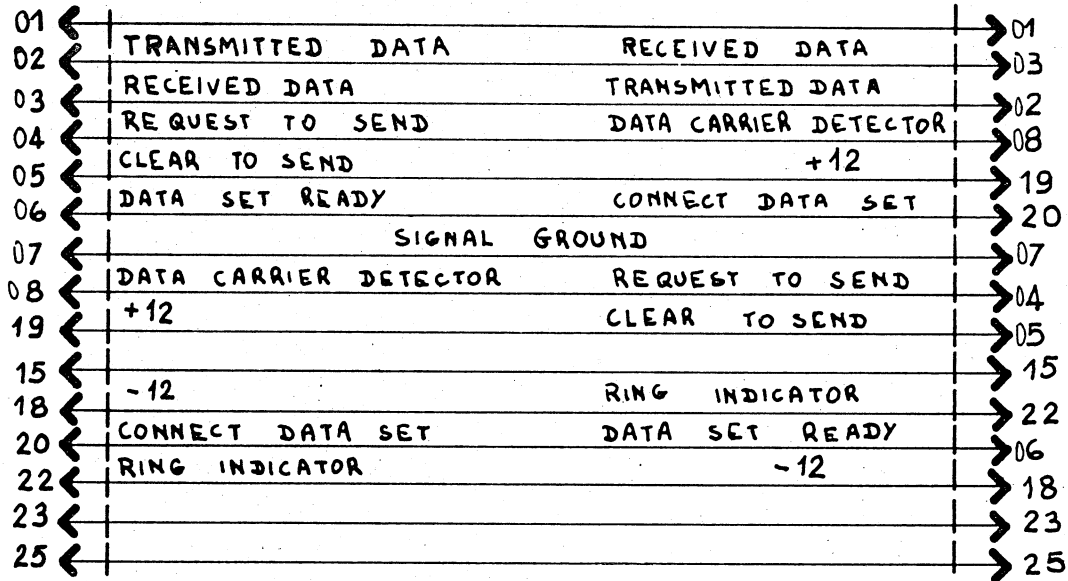 01 01
TRANSMITTED DATA RECEIVED DATA
02 03
RECEIVED DATA TRANSMITTED DATA
03 02
REQUEST TO SEND DATA CARRIER DETECTOR
04 08
CLEAR TO SEND +12
05 19
DATA SET READY CONNECT DATA SET
06 20
SIGNAL GROUND
07 07
DATA CARRIER DETECTOR REQUEST TO SEND
08 04
+12 CLEAR TO SEND
19 05
15 15
-12 RING INDICATOR
18 22
CONNECT DATA SET DATA SET READY
20 06
RING INDICATOR -12
22 18
23 23
25 25